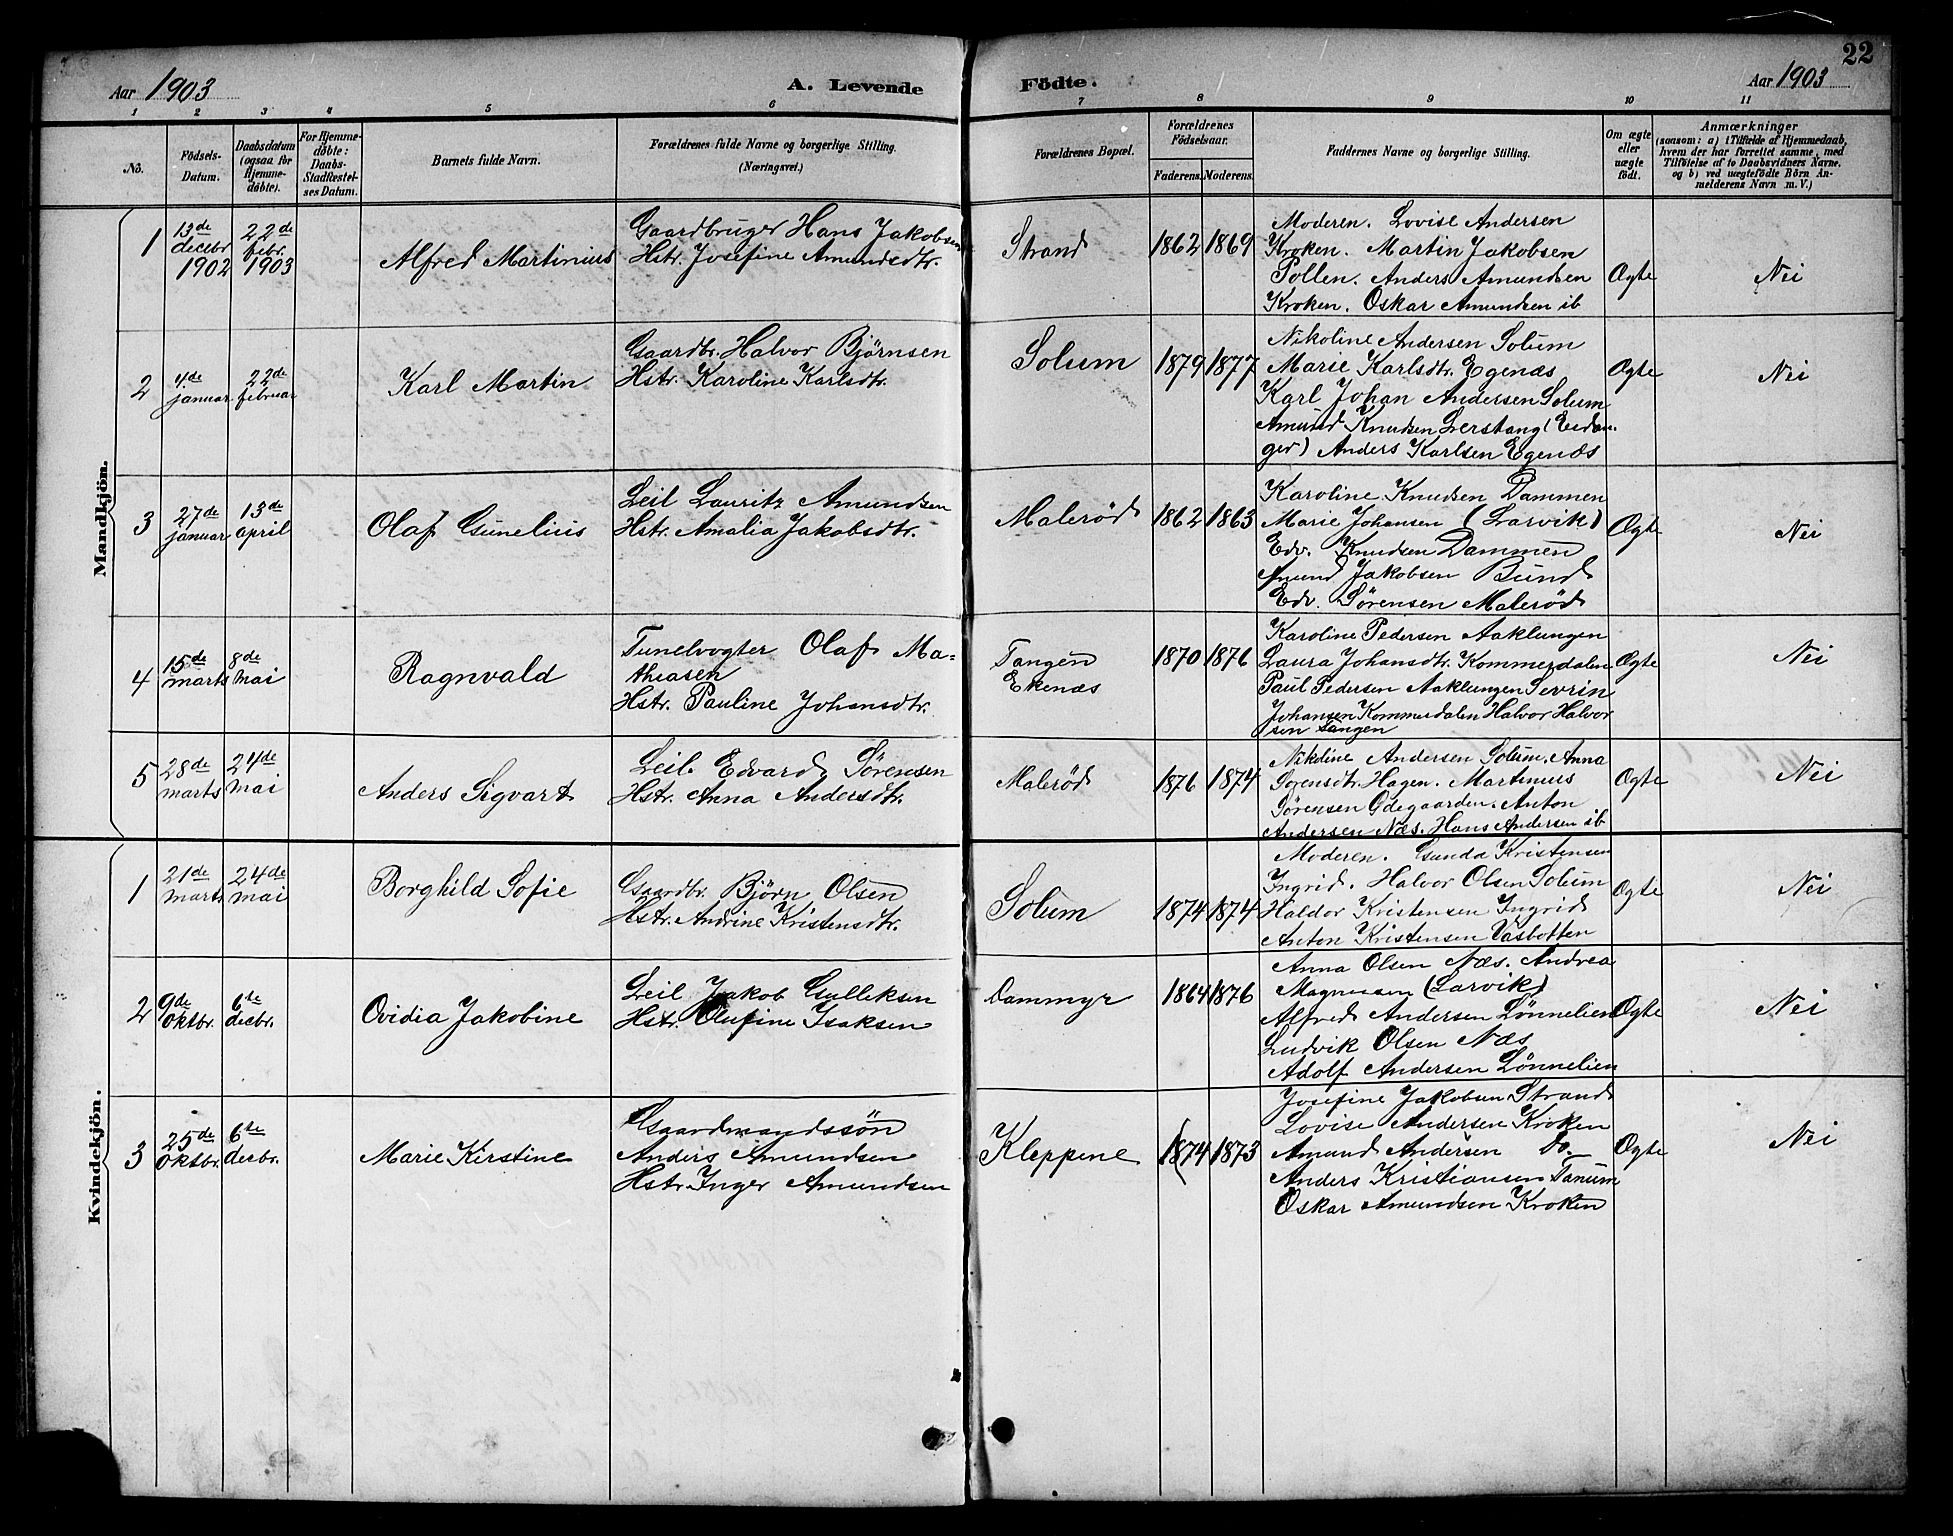 22
Aar 1903
A. Levende Födte.
Aar 1903
1 2 3 4 5 6 7 8 9 10 11
No.
Födsels-
Datum.
Daabsdatum
(ogsaa for
Hjemme-
döbte).
For Hjemme-
döbte:
Daabs-
Stadfæstel-
ses Datum.
Barnets fulde Navn.
Forældrenes fulde Navne og borgerlige Stilling.
(Næringsvei.)
Forældrenes Bopæl.
Forældrenes
Födselsaar.
Faderens. Moderens.
Faddernes Navne og borgerlige Stilling.
Om ægte
eller
uægte
födt.
Anmærkninger
(saasom: a) i Tilfælde af Hjemmedaab,
hvem der har forrettet samme, med
Tilföielse af to Daabsvidners Navne,
og b) ved uægtefödte Börn An-
melderens Navn m. V.)
Mandkjön.
1
13de
decebr
1902
22de
febr.
1903
Alfred Martinius
Gaardbruger Hans Jakobsen
Hstr. Josefine Amundsdtr.
Strand
1862
1869
Moderen. Lovise Andersen
Kroken. Martin Jakobsen
Pollen. Anders Amundsen
Kroken. Oskar Amundsen ib
Ægte
Nei
2
4de
januar
22de
februar
Karl Martin
Gaardbr. Halvor Bjørnsen
Hstr. Karoline Karlsdtr.
Solum
1879
1877
Nikoline Andersen Solum
Marie Karlsdtr. Egenæs
Karl Johan Andersen Solum
Amund Knudsen Lerstang (Eidan-
ger) Anders Karlsen Egenæs
Ægte
Nei
3
27de
januar
13de
april
Olaf Gunelius
Leil Lauritz Amundsen
Hstr. Amalia Jakobsdtr.
Malerød
1862
1863
Karoline Knudsen Dammen
Marie Johansen (Larvik)
Edv. Knudsen Dammen
Amund Jakobsen Bund
Edv. Sørensen Malerød
Ægte
Nei
4
15de
marts
8de
mai
Ragnvald
Tunelvogter Olaf Ma-
thiasen
Hstr. Pauline Johansdtr.
Tangen
Ekenæs
1870
1876
Karoline Pedersen Aaklungen
Laura Johansdtr. Kommerdalen
Paul Pedersen Aaklungen Sevrin
Johansen Kommerdalen Halvor Halvor
sen Tangen
Ægte
Nei
5
28de
marts
24de
mai
Anders Sigvart
Leil. Edvard Sørensen
Hstr. Anna Andersdtr.
Malerød
1876
1874
Nikoline Andersen Solum. Anna
Sørensdtr. Hagen. Martinius
Sørensen Ødegaarden. Anton
Andersen Næs. Hans Andersen ib
Ægte
Nei
Kvindekjön.
1
21de
marts
24de
mai
Borghild Sofie
Gaardbr. Bjørn Olsen
Hstr. Andrine Kristensdtr.
Solum
1874
1874
Moderen. Gunda Kristensen
Ingrid. Halvor Olsen Solum
Haldor Kristensen Ingrid
Anton Kristensen Vasbotten
Ægte
Nei
2
9de
oktbr.
6te
decbr.
Ovidia Jakobine
Leil Jakob Gulleksen
Hstr. Olufine Isaksen
Dammyr
1864
1876
Anna Olsen Næs. Andrea
Magnussen (Larvik)
Alfred Andersen Lønnelien
Ludvik Olsen Næs
Adolf Andersen Lønnelien
Ægte
Nei
3
25de
oktbr.
6te
decbr.
Marie Kirstine
Gaardmandssøn
Anders Amundsen
Hstr. Inger Amundsen
Kleppene
1874
1873
Josefine Jakobsen Strand
Lovise Andersen Kroken
Amund Andersen Do.
Anders Kristiansen Tanum
Oskar Amundsen Kroken
Ægte
Nei